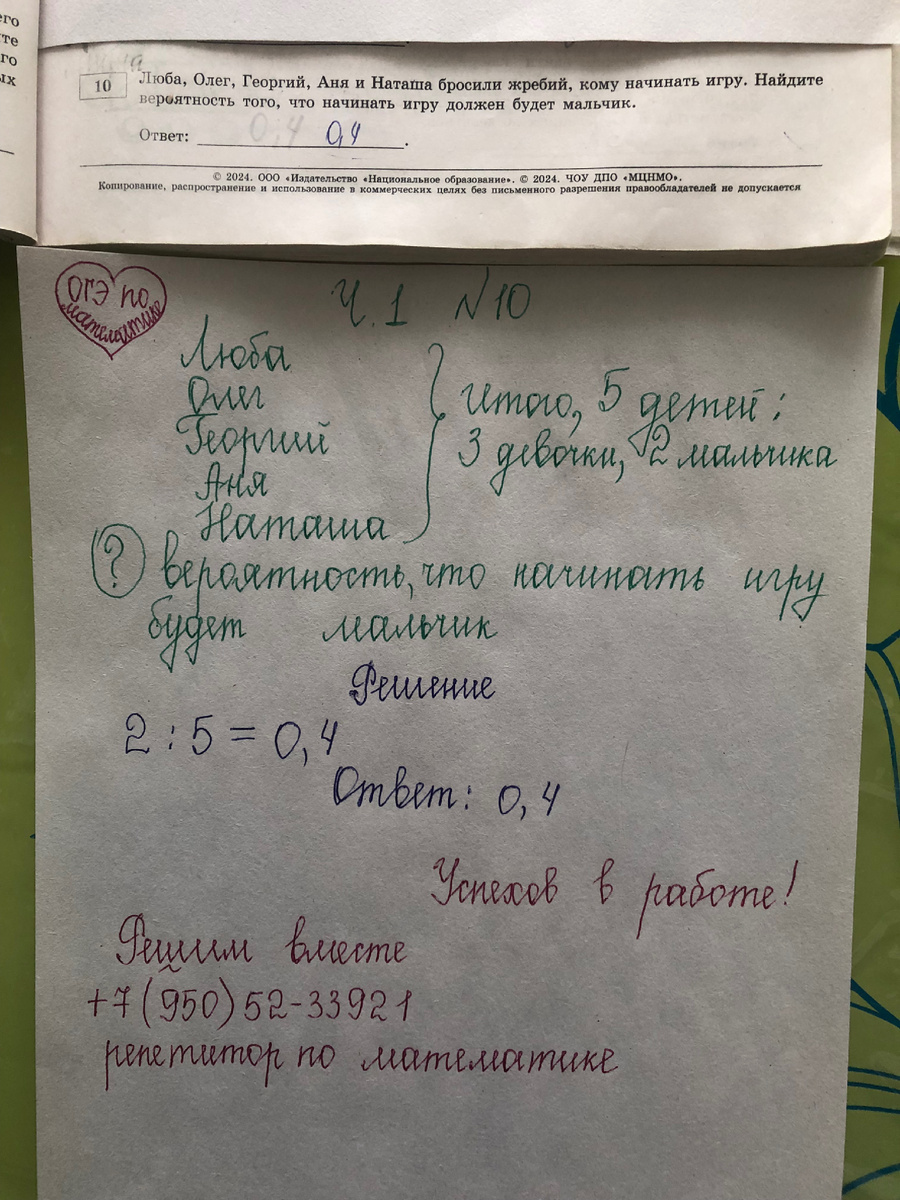 его
те
го
ых
10
Люба, Олег, Георгий, Аня и Наташа бросили жребий, кому начинать игру. Найдите
вероятность того, что начинать игру должен будет мальчик.
Ответ: 0,4 0,4.
© 2024. ООО «Издательство «Национальное образование». © 2024. ЧОУ ДПО «МЦНМО».
Копирование, распространение и использование в коммерческих целях без письменного разрешения правообладателей не допускается
ОГЭ по
математике
Ч.1 №10
Люба
Олег
Георгий
Аня
Наташа
Итого, 5 детей:
3 девочки, 2 мальчика
? вероятность, что начинать игру
будет мальчик
Решение
2 : 5 = 0,4
Ответ: 0,4
Успехов в работе!
Решим вместе
+7(950)52-33921
репетитор по математике